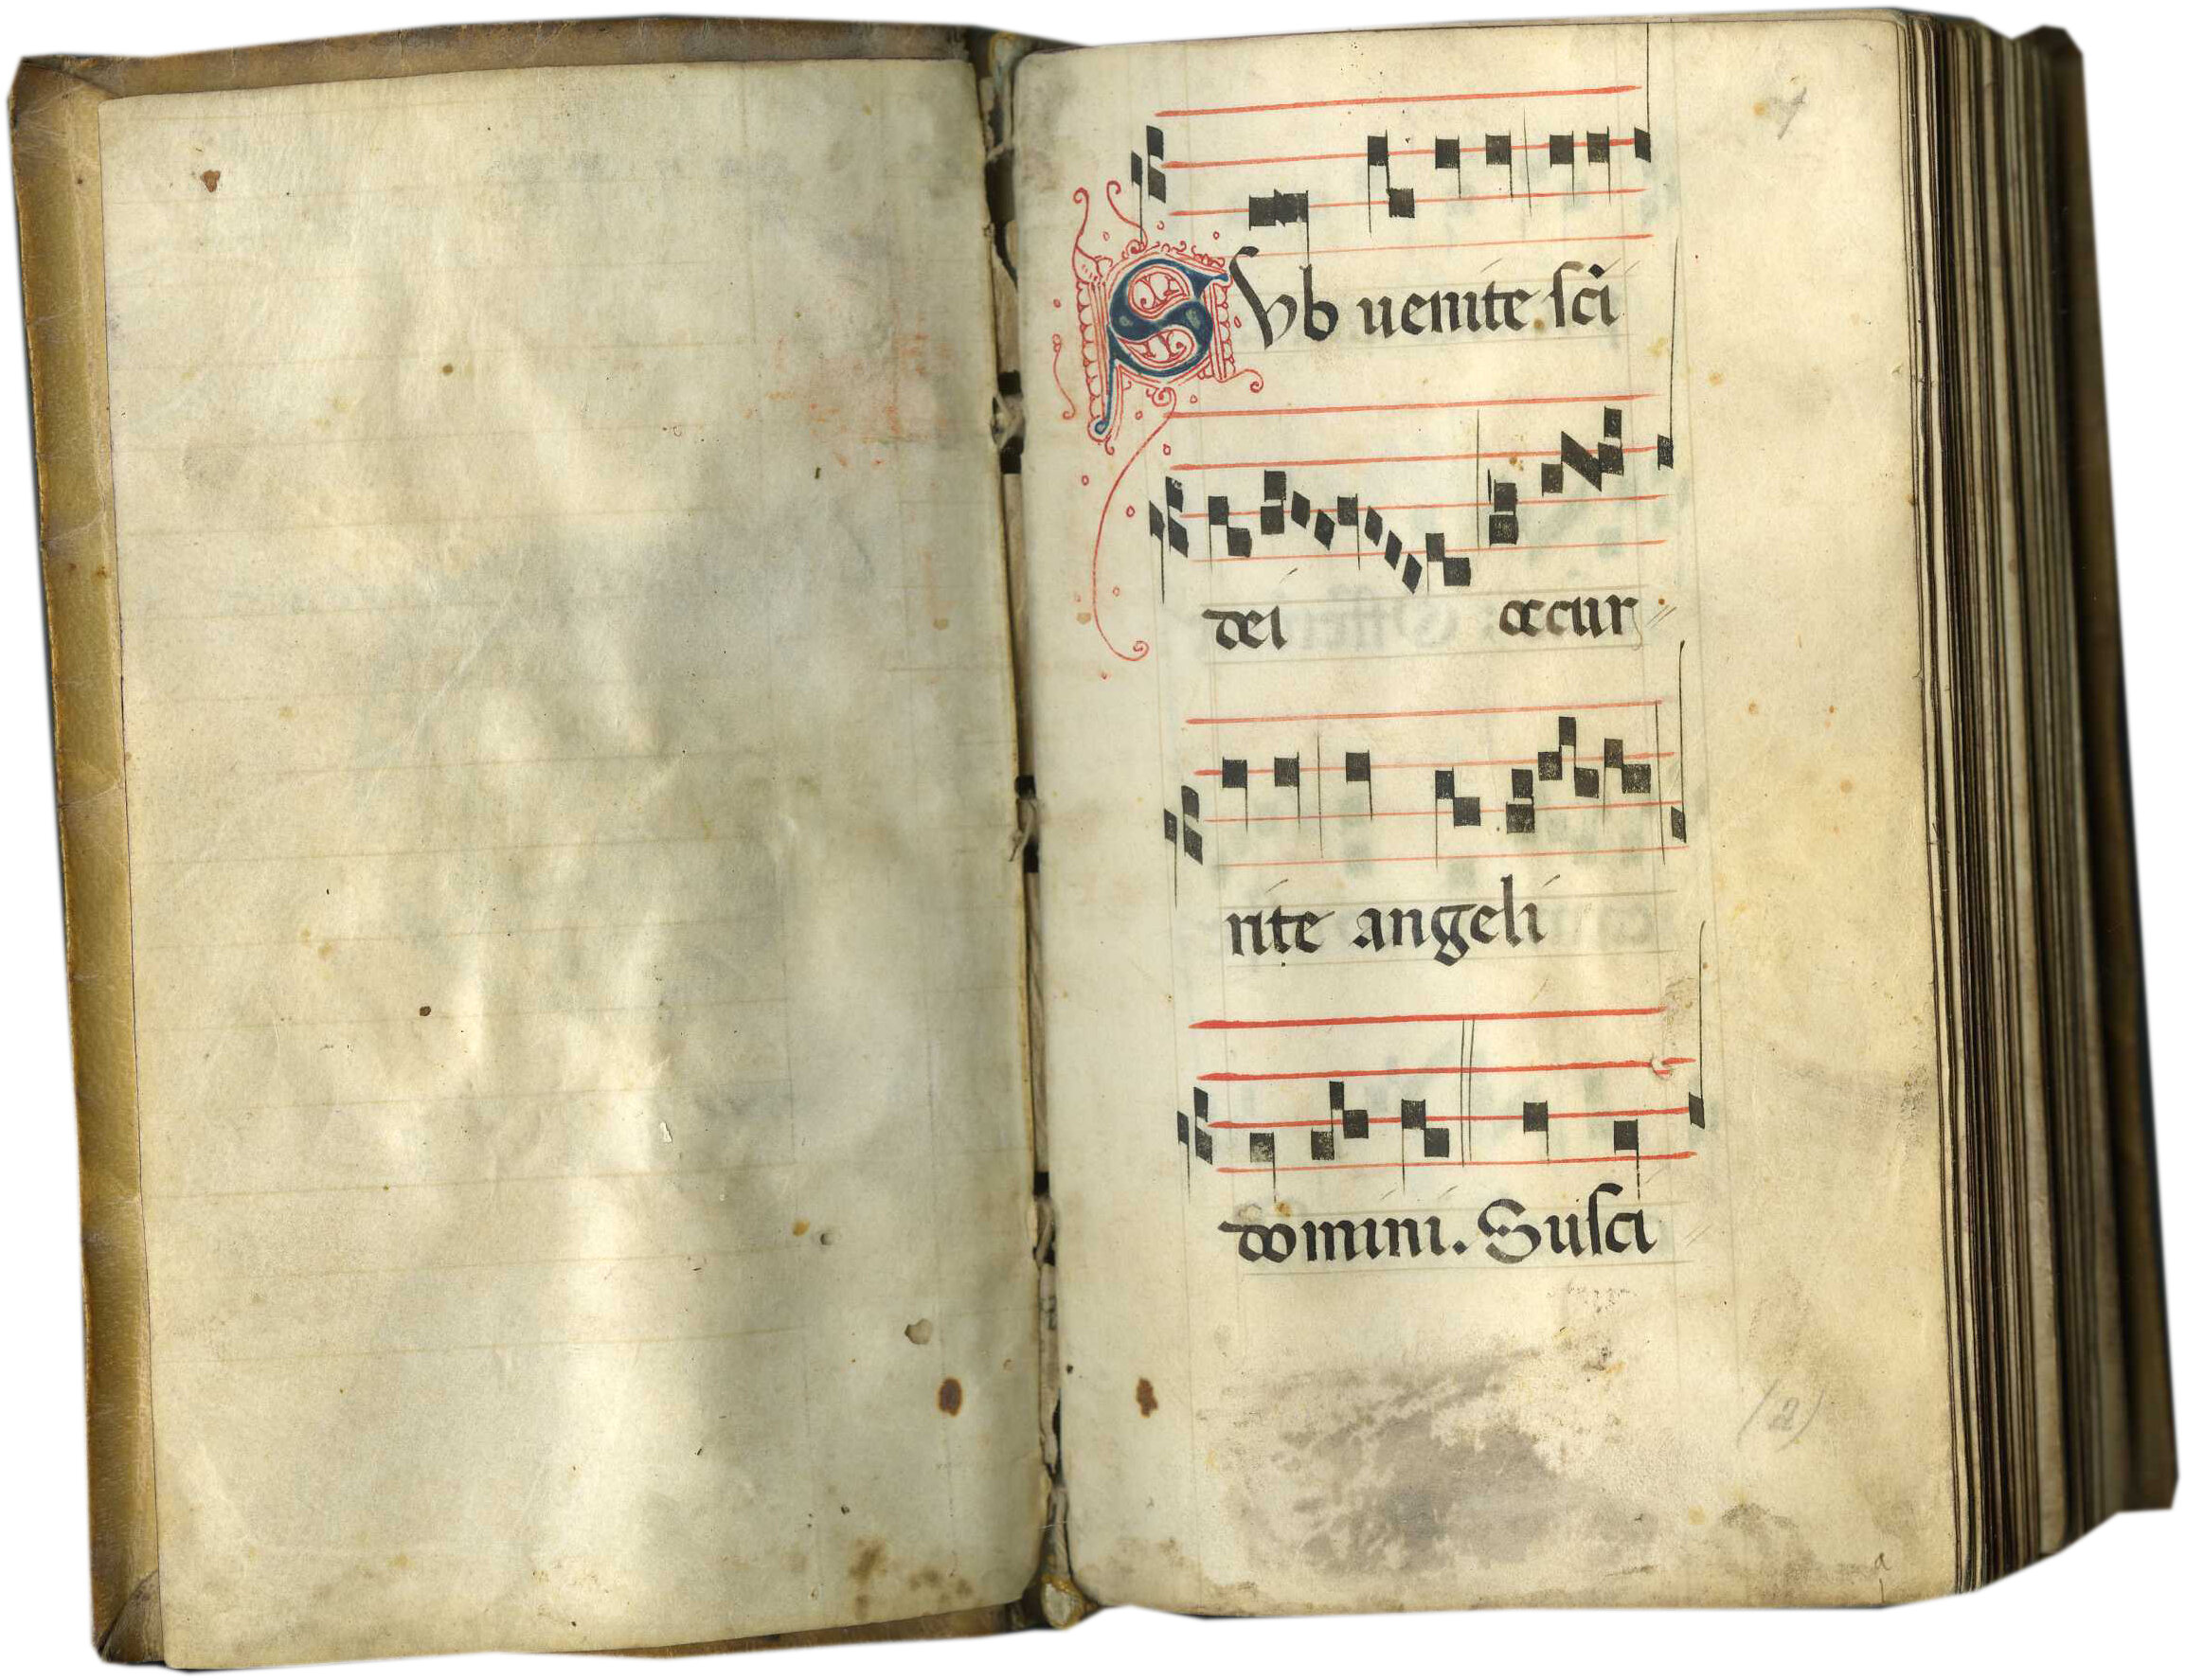 SVb uenite sci
dei occur
rite angeli
domini. Susci
(2)
a